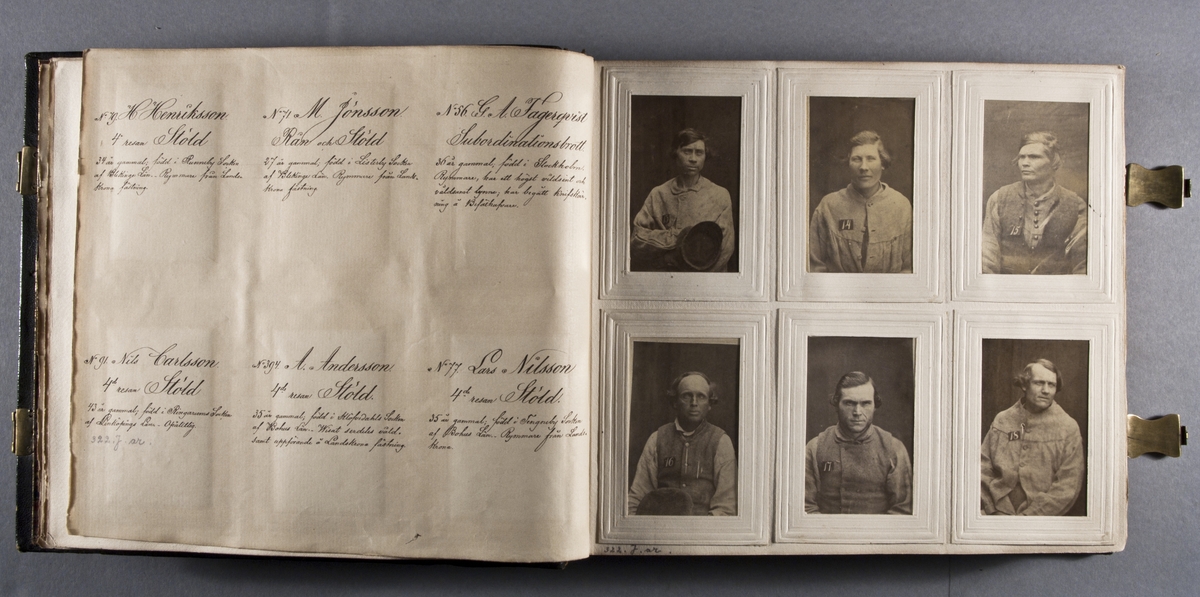 H Henriksson
4e resan Stöld
34 år gammal, född i Ronneby Socken
af Blekinge Län. Rymmare från Lands-
krona fästning.
No 71 M Jönsson
Rån och Stöld
27 år gammal, född i Listerby Socken
af Blekinge Län. Rymmare från Lands-
krona fästning.
No 56 G A Fagerqvist
Subordinationsbrott
36 år gammal, född i Stockholm.
Rymmare, har ett högst våldsamt och
lynne, har begått knifskär-
ning å Befälhafvare.
No 91 Nils Carlsson
4de resan Stöld
43 år gammal, född i Ringarums Socken
af Linköpings Län. Opålitlig
322. J. ar.
No 394 A. Andersson
4de resan Stöld.
35 år gammal, född i Socken
af Bohus Län. Wisat serdeles våld-
samt uppförande å Landskrona fästning.
No 77 Lars Nilsson
4de resan Stöld.
35 år gammal, född i Tegneby Socken
af Bohus Län. Rymmare från Lands-
krona.
14
15
16
17
18
322. J. ar.